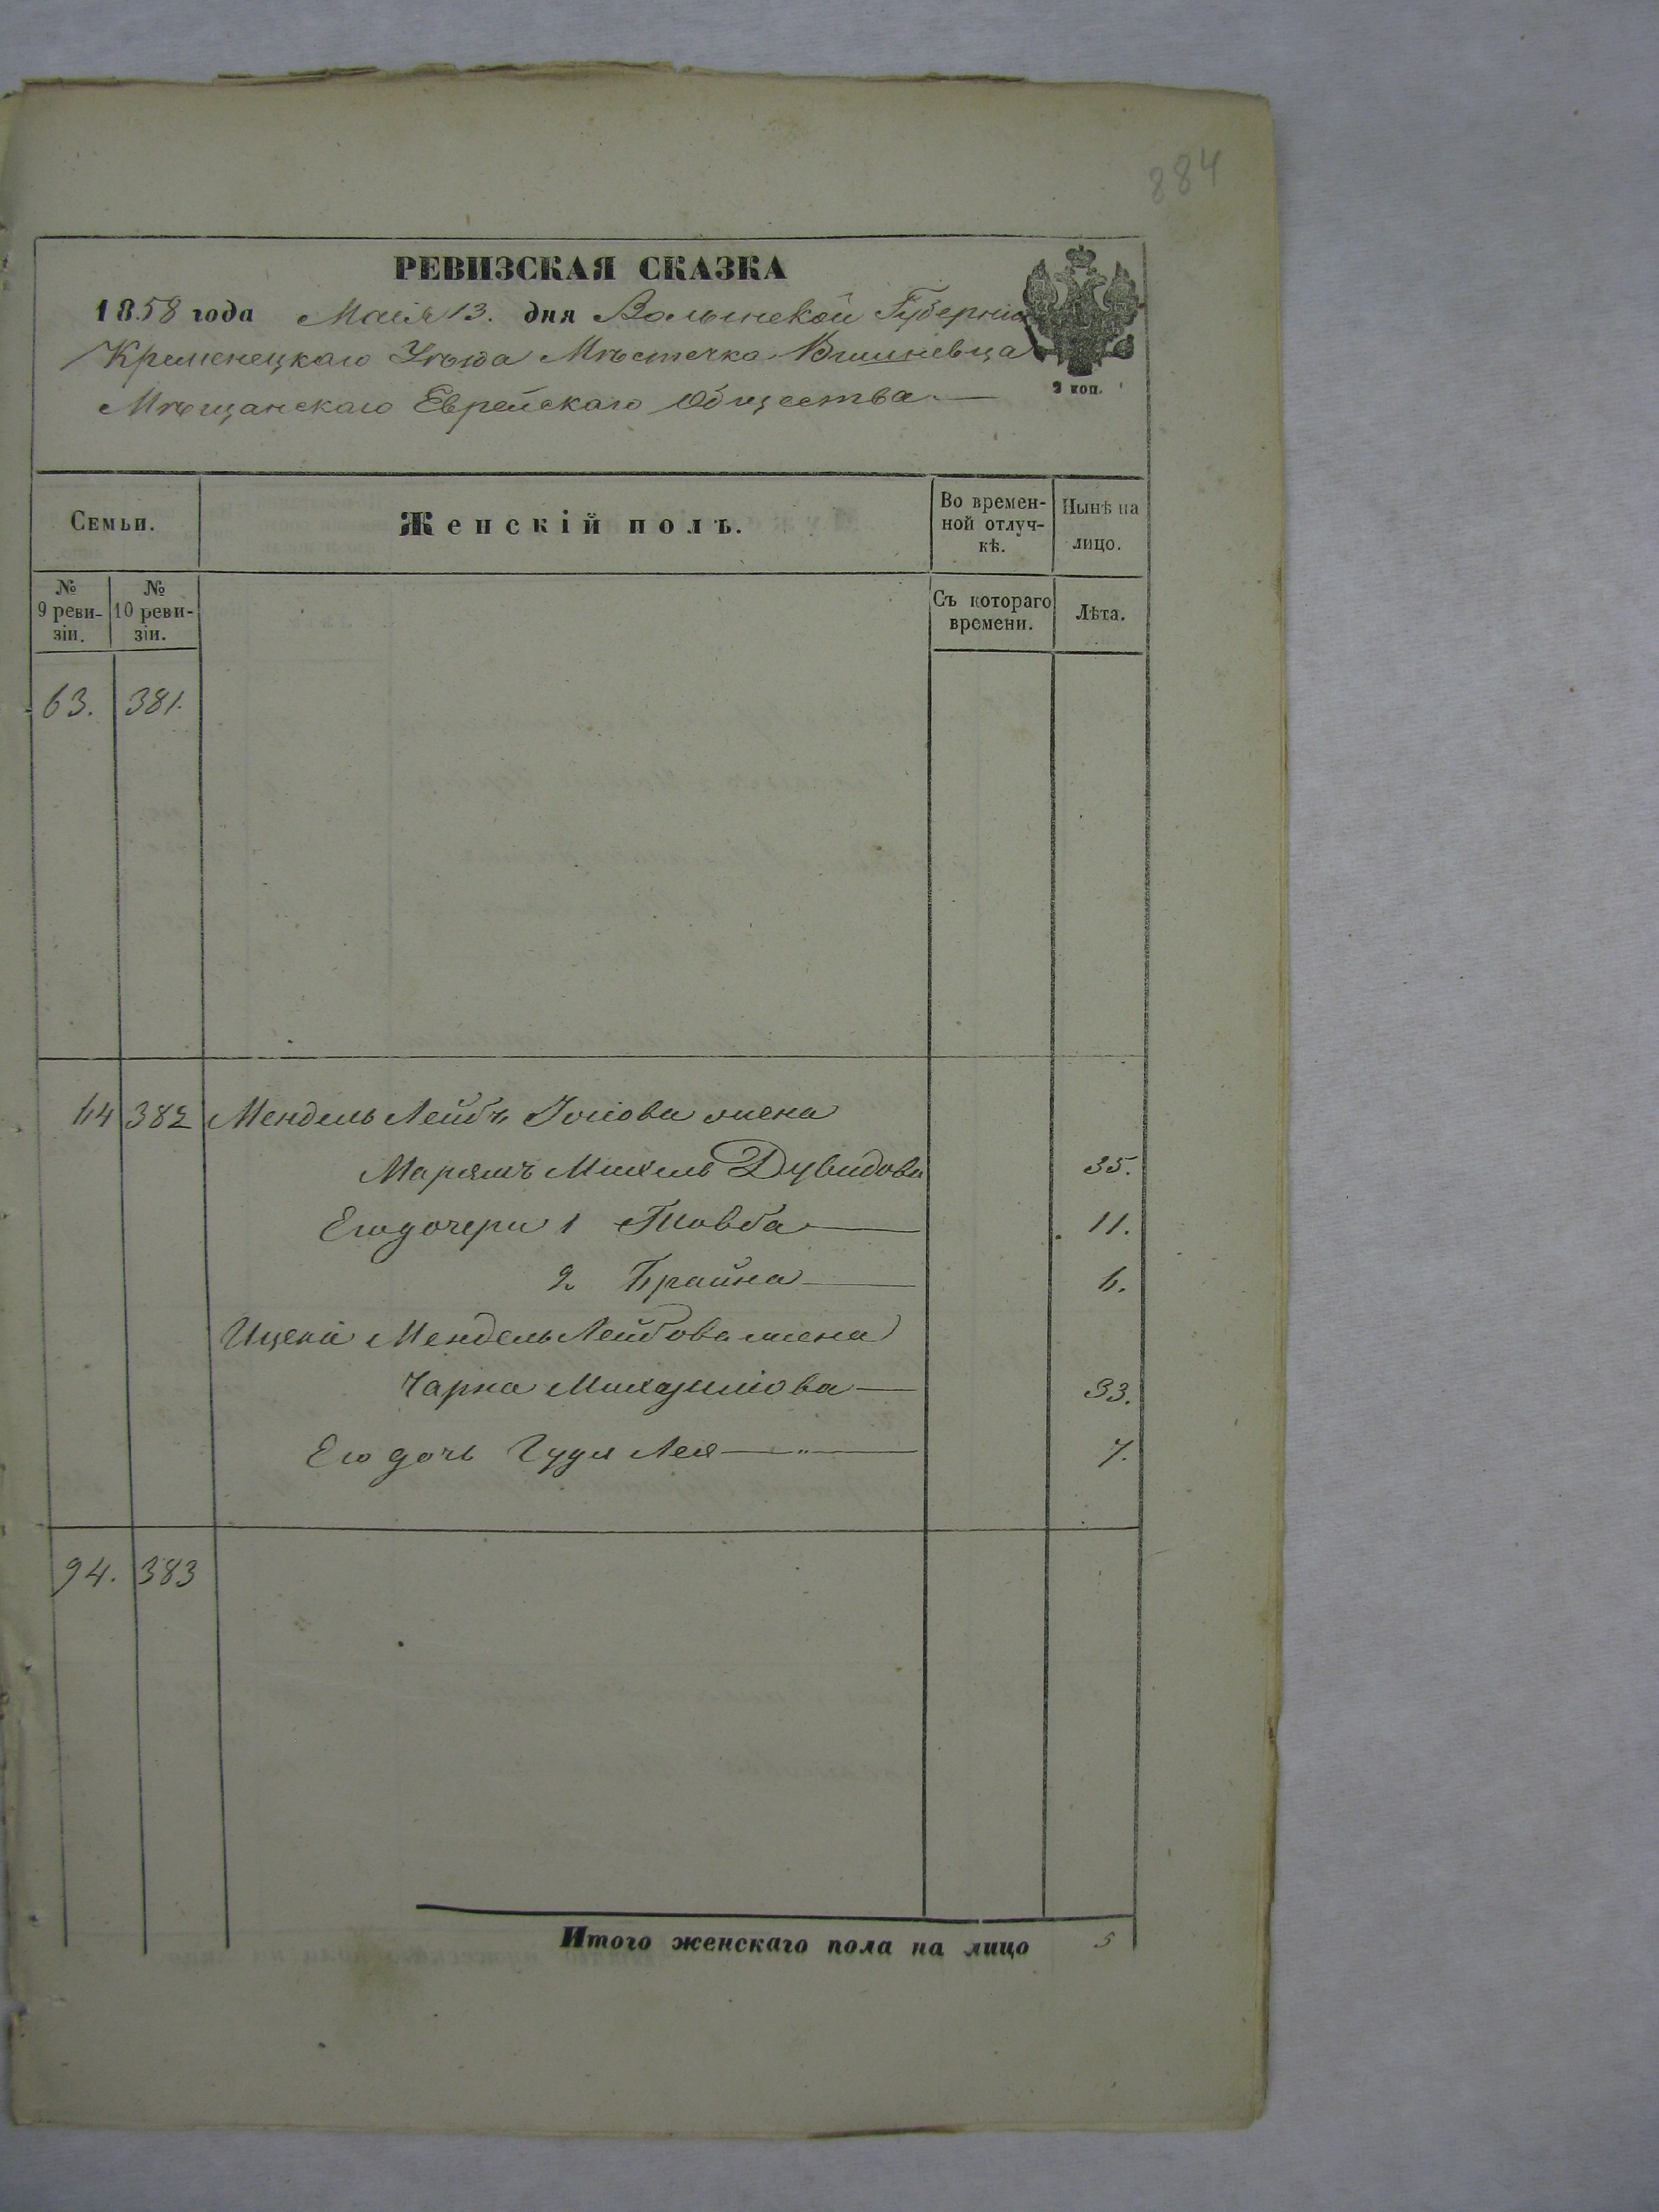 884
РЕВИЗСКАЯ СКАЗКА
1858 года Маія 13. дня Волынской Губерніи
Кременецкаго Уѣзда Мѣстечка Вишневца
2 коп.
Мѣщанскаго Еврейскаго Общества
Семьи. Женскій полъ. Во времен-ной отлуч-кѣ. Нынѣ на лицо.
№ 9 реви-зіи. № 10 реви-зіи. Съ котораго времени. Лѣта.
63. 381.
44 382 Мендель Лейбъ Іосіова жена
Марямъ Михель Дувидова 35.
Его дочери 1 Товба 11.
2 Брайна 6.
Мендель Лейбова жена
Чарна 33.
Его дочь Гудя Лея 7.
94. 383
Итого женскаго пола на лицо 5